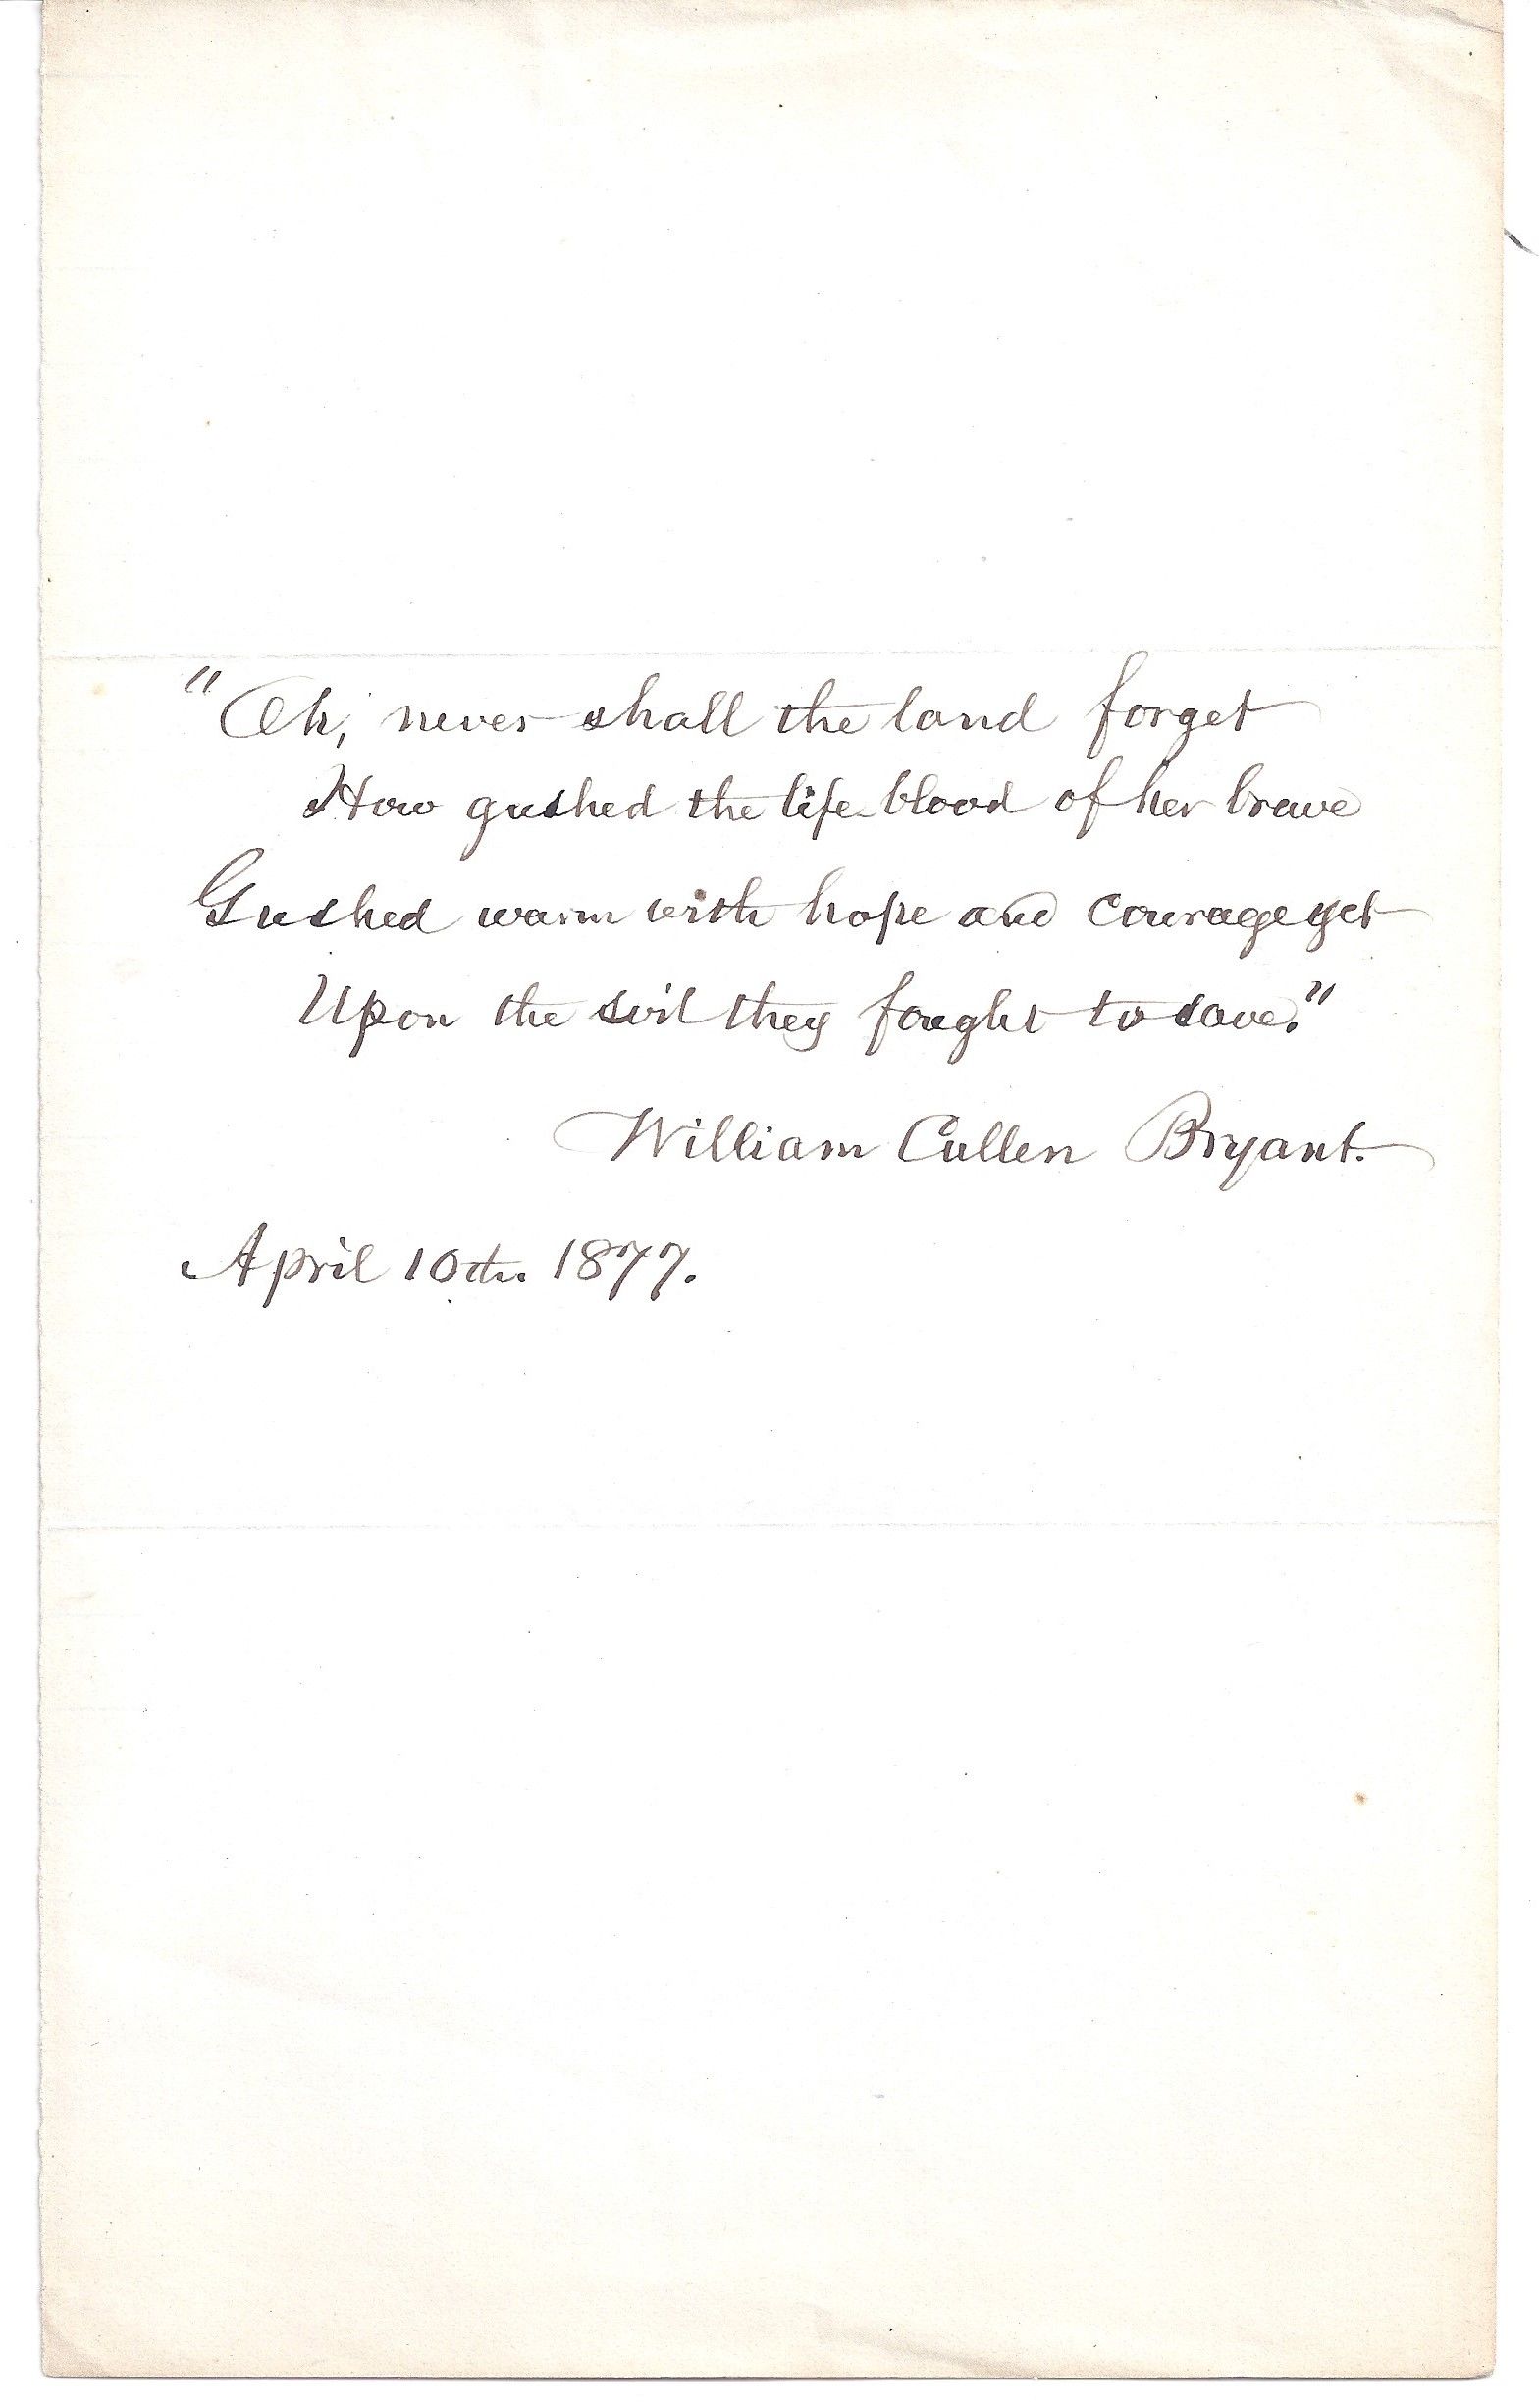 "Oh, never shall the land forget
How gushed the life-blood of her brave
Gushed warm with hope and courage yet
Upon the soil they fought to save."
William Cullen Bryant.
April 10th. 1877.